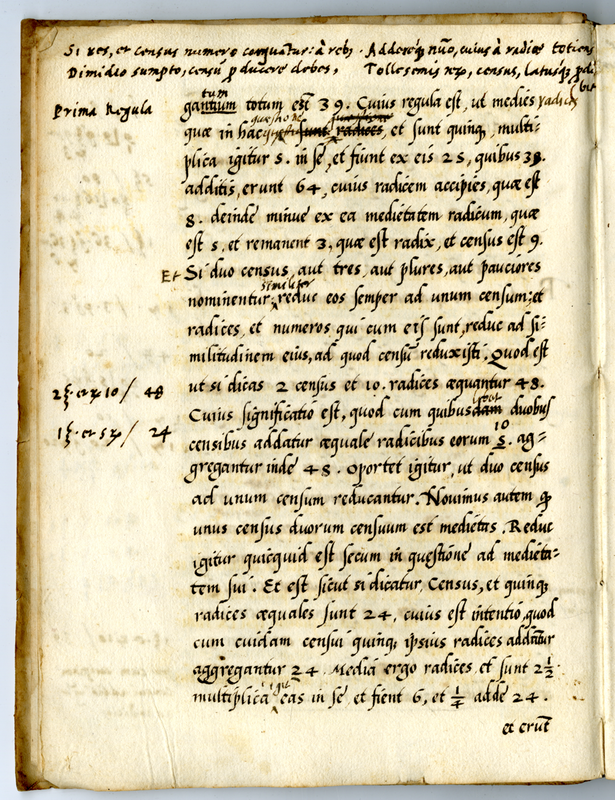 Si res, et census numero coæquatur: à rebus Addereq nūo, cuius à radice totiens
Dimidio sumpto, censū producere debes, Tolle semis rerum, census, latusq prodibit
Prima Regula
gantium totum est 39. Cuius regula est, ut medies radices
quæ in hac quæstione sunt radices, et sunt quinq, multi-
plica igitur 5. in se, et fiunt ex eis 25, quibus 39.
additis, erunt 64, cuius radicem accipies, quæ est
8. deinde minue ex ea medietatem radicum, quæ
est 5, et remanent 3, quæ est radix, et census est 9.
Et Si duo census, aut tres, aut plures, aut pauciores
nominentur, similiter reduc eos semper ad unum censum; et
radices, et numeros qui cum eis sunt, reduc ad si-
militudinem eius, ad quod censū reduxisti. Quod est
ut si dicas 2 census et 10. radices æquantur 48.
Cuius significatio est, quod cum quibusdam duobus
censibus addatur æquale radicibus eorum 10 5. ag-
gregantur inde 48. Oportet igitur, ut duo census
ad unum censum reducantur. Novimus autem q
unus census duorum censuum est medietas. Reduc
igitur quicquid est secum in questione ad medieta-
tem sui. Et est sicut si dicatur, Census, et quinq
radices æquales sunt 24, cuius est intentio, quod
cum cuidam censui quinq ipsius radices addātur
aggregantur 24. Mediā ergo radices et sunt 2 1/2.
multiplica igit eas in se et fient 6, et 1/4 adde 24.
et erūt
10 / 48
24